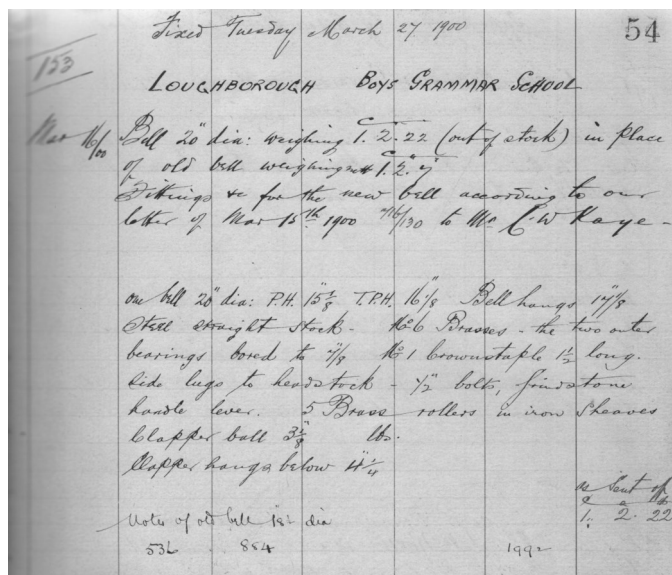 Fixed Tuesday March 27 1900
54
153
LOUGHBOROUGH BOYS GRAMMAR SCHOOL
Mar 16/00
Bell 20" dia: weighing 1. 2. 22 (out of stock) in place
of old bell weighing 1. 2. 7
Fittings &c for the new bell according to our
letter of Mar 15th 1900 716/130 to Mr C. W Kaye -
one bell 20" dia: P.H. 15 1/8" T.P.H. 16 1/8" Bell hangs 17 1/8
Steel straight stock - No 6 Brasses - the two outer
bearings bored to 7/8 No 1 crownstaple 1 1/2 long.
side lugs to headstock - 1/2" bolts, grindstone
handle lever. 5 Brass rollers in iron sheaves
Clapper ball 3 1/8" lbs.
Clapper hangs below 4 1/4
as sent off
c q lb
1. 2. 22
Notes of old bell dia
536 854 1992